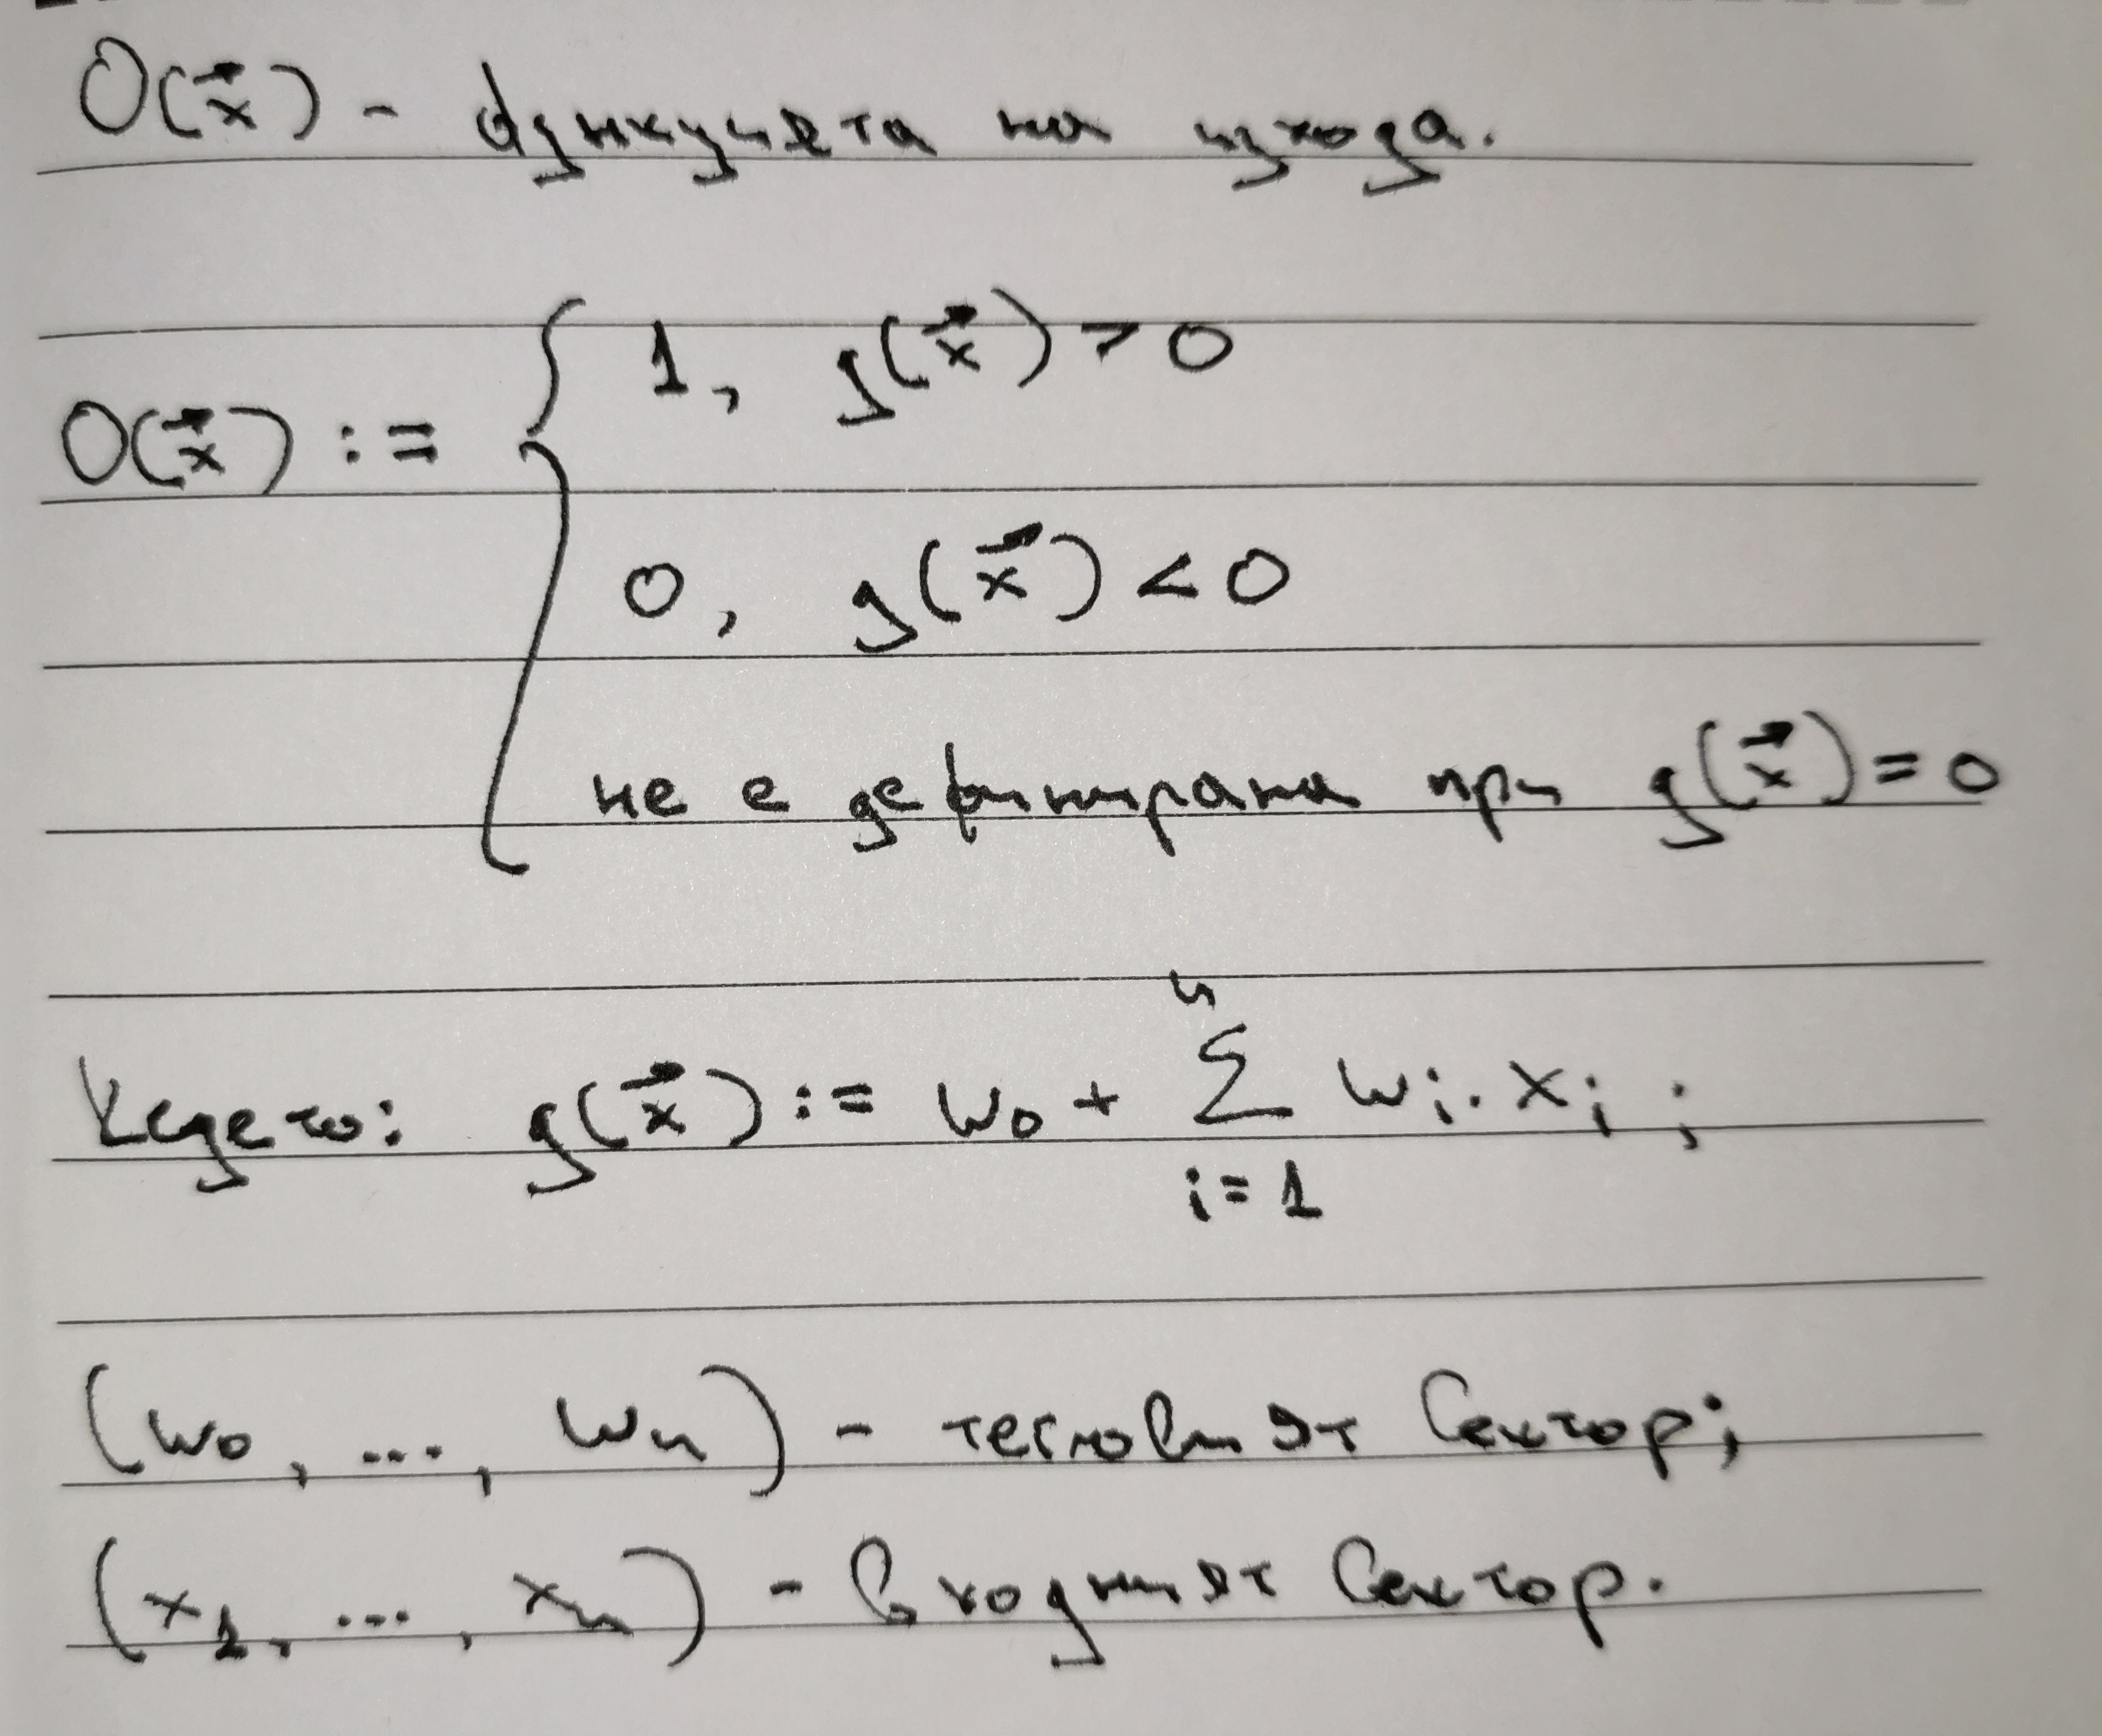 O(x⃗) - функцията на изхода.
O(x⃗) := { 1, g(x⃗) > 0
0, g(x⃗) < 0
не е дефинирана при g(x⃗) = 0
Където: g(x⃗) := w₀ + ∑ᵢ₌₁ⁿ wᵢ . xᵢ ;
(w₀, ..., wₙ) - тегловият вектор;
(x₁, ..., xₙ) - входният вектор.